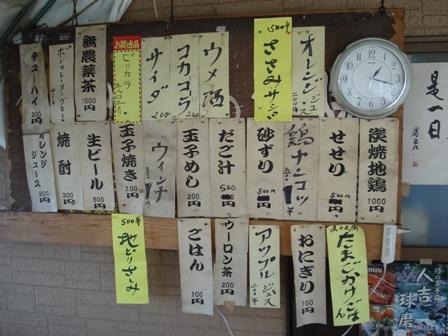 オレンジジュース
200円
500円
ささみサシ
ウメ酒
コカコラ
200円
サイダー
200円
お買得品
ピリカラ
無農薬茶
1000円
ボジョレーヌーヴォー
チューハイ
300円
炭焼地鶏
1000円
せせり
鶏ナンコツ
砂ずり
500円
だご汁
500円
玉子めし
200円
ウィンナー
玉子焼き
200円
生ビール
500円
焼酎
300円
オレンジジュース
200円
たまごかけごはん
おにぎり
100円
アップルジュース
200円
ウーロン茶
200円
ごはん
100円
500円
地どりささみ
是一日
人吉球磨
KIRIN